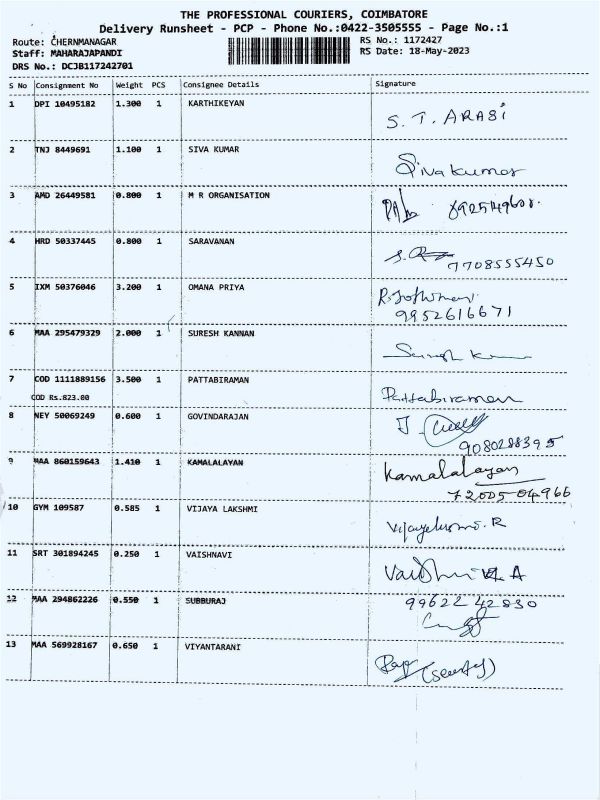 THE PROFESSIONAL COURIERS, COIMBATORE
Delivery Runsheet - PCP - Phone No.:0422-3505555 - Page No.:1
Route: CHERNMANAGAR
RS No.: 1172427
Staff: MAHARAJAPANDI
RS Date: 18-May-2023
DRS No.: DCJB117242701
S No Consignment No Weight PCS Consignee Details Signature
1 DPI 10495182 1.300 1 KARTHIKEYAN S. T. ARASI
2 TNJ 8449691 1.100 1 SIVA KUMAR Sivakumar
3 AMD 26449581 0.800 1 M R ORGANISATION
4 HRD 50337445 0.800 1 SARAVANAN
7708555450
5 IXM 50376046 3.200 1 OMANA PRIYA
9952616671
6 MAA 295479329 2.000 1 SURESH KANNAN
7 COD 1111889156 3.500 1 PATTABIRAMAN Pattabiraman
COD Rs.823.00
8 NEY 50069249 0.600 1 GOVINDARAJAN J.
9080288395
9 MAA 860159643 1.410 1 KAMALALAYAN Kamalalayan
72005 04966
10 GYM 109587 0.585 1 VIJAYA LAKSHMI
11 SRT 301894245 0.250 1 VAISHNAVI
12 MAA 294862226 0.550 1 SUBBURAJ 99622 42830
13 MAA 569928167 0.650 1 VIYANTARANI